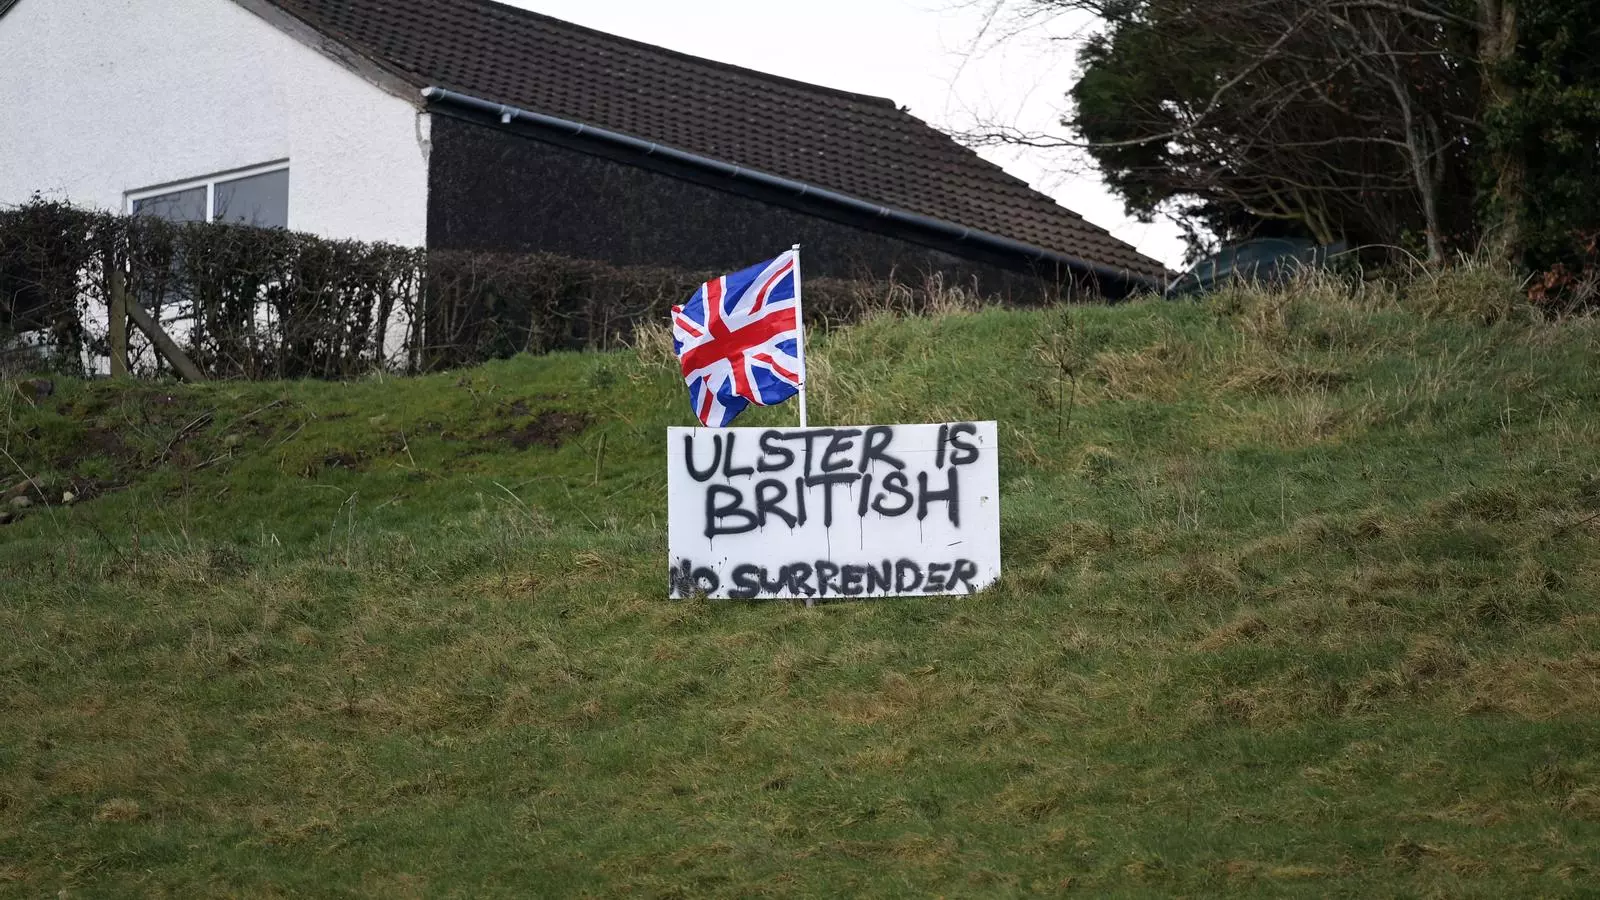 ULSTER IS
BRITISH
NO SURRENDER